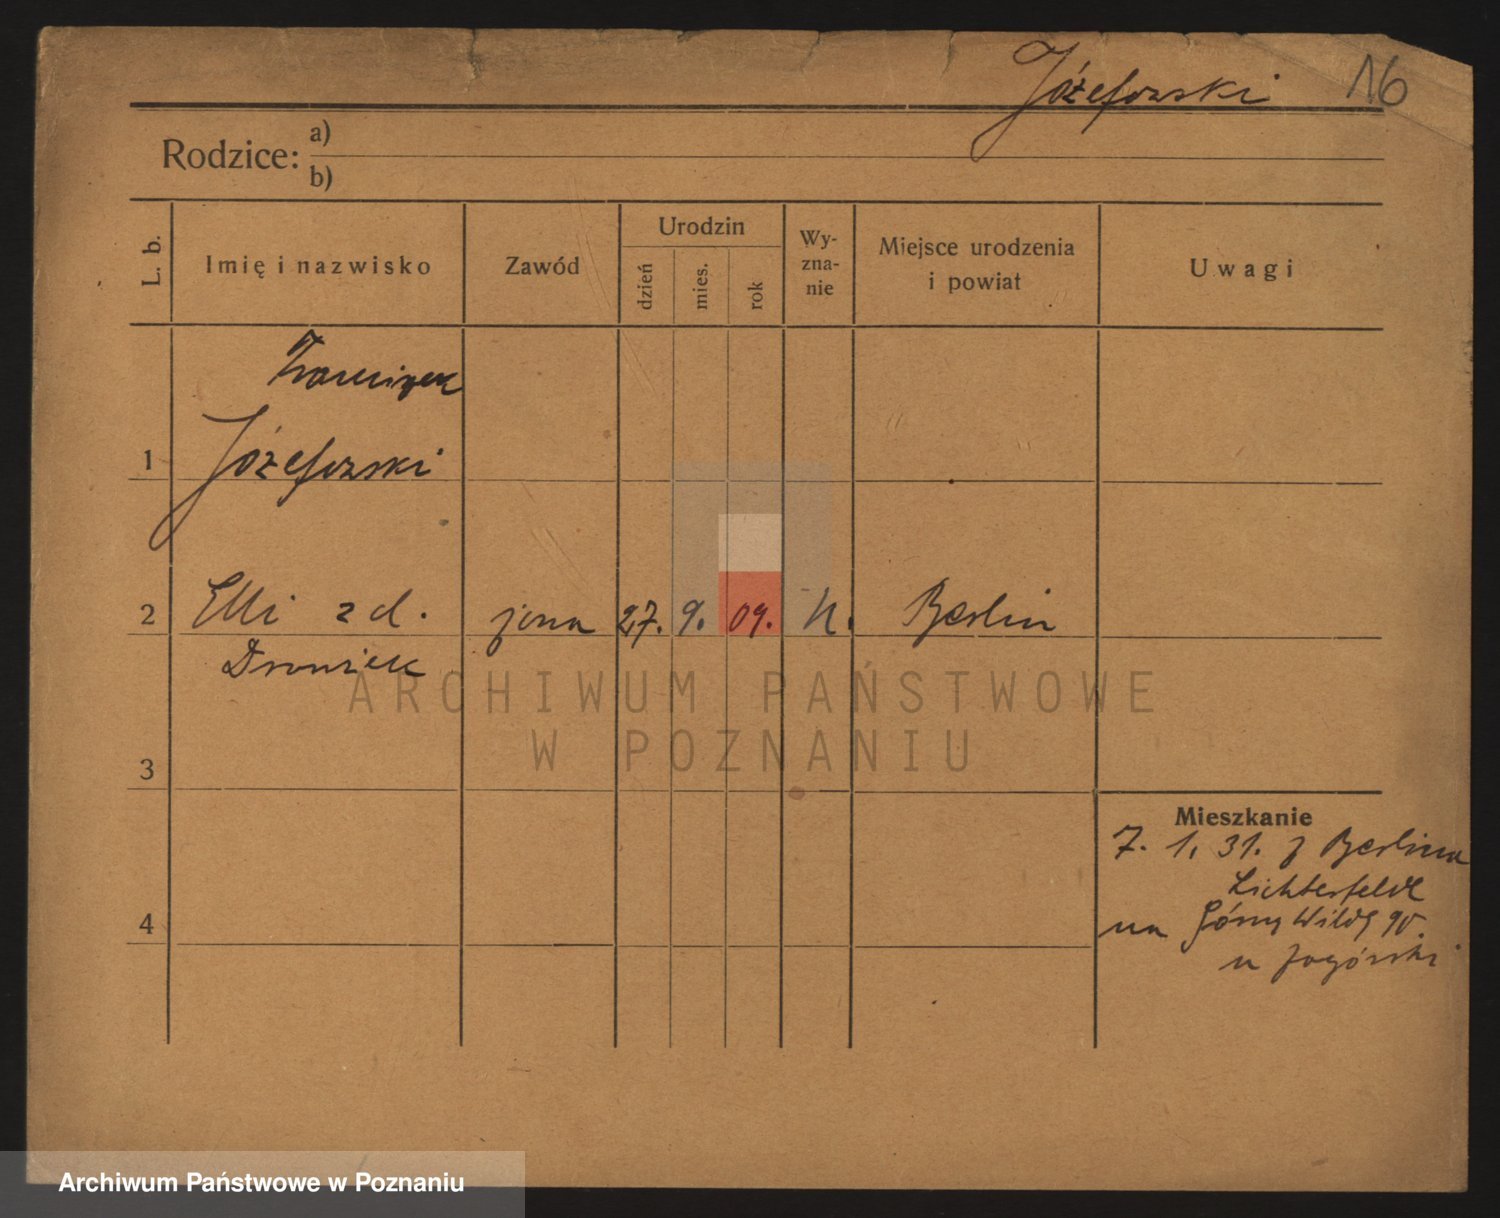 Józefowski 16
Rodzice: a)
b)
L. b.
Imię i nazwisko
Zawód
Urodzin
dzień
mies.
rok
Wy-
zna-
nie
Miejsce urodzenia
i powiat
Uwagi
Franciszek
1 Józefowski
2 Elli z d. żona 27. 9. 09. Berlin
3
4
Mieszkanie
7. 1. 31. z Berlina
Lichterfelde
na Górny Wildę 90.
u
ARCHIWUM PAŃSTWOWE
W POZNANIU
Archiwum Państwowe w Poznaniu